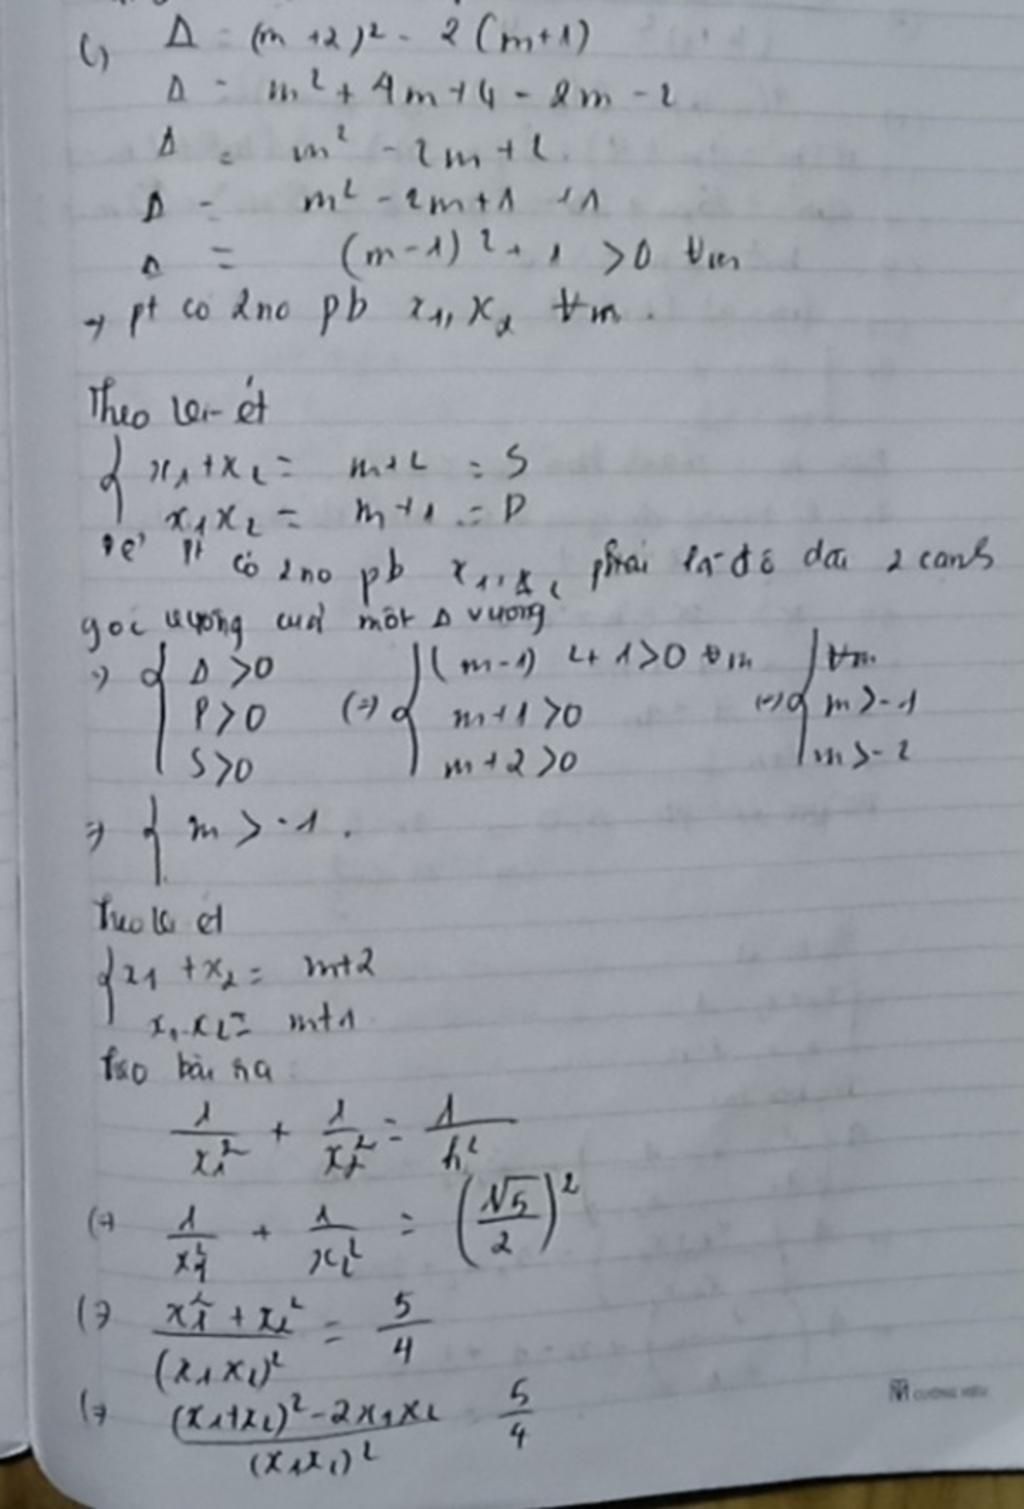 c) Δ = (m+2)² - 2(m+1)
Δ = m² + 4m + 4 - 2m - 2
Δ = m² - 2m + 2.
Δ = m² - 2m + 1 + 1
Δ = (m-1)² + 1 > 0 ∀m
→ pt có 2no pb x₁, x₂ ∀m.
Theo Vi-ét
{ x₁ + x₂ = m+2 = S
x₁x₂ = m+1 = P
Để pt có 2no pb x₁, x₂ phải là độ dài 2 cạnh
góc vuông của một Δ vuông
→ { Δ > 0 (=) { (m-1)² + 1 > 0 ∀m (=) { ∀m
P > 0 m+1 > 0 m > -1
S > 0 m+2 > 0 m > -2
=> { m > -1.
Theo Vi ét
{ x₁ + x₂ = m+2
x₁.x₂ = m+1
Theo bài ra
1/x₁² + 1/x₂² = 1/h²
(=) 1/x₁² + 1/x₂² = (√5/2)²
(=) (x₁² + x₂²)/(x₁x₂)² = 5/4
(=) ((x₁+x₂)² - 2x₁x₂)/(x₁x₂)² 5/4